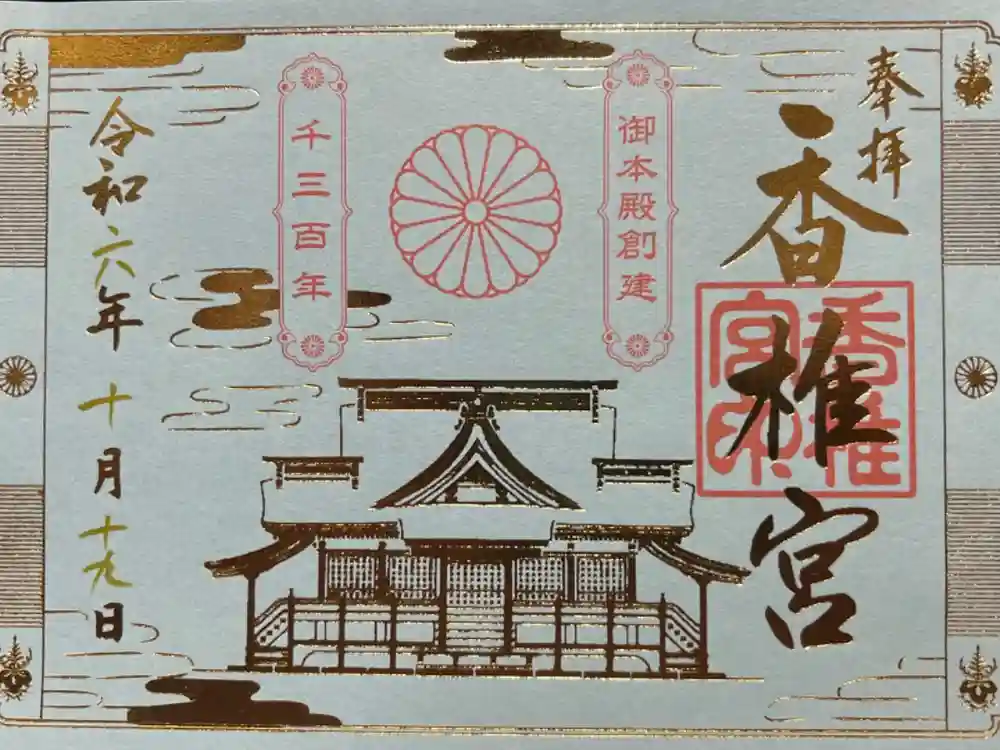 奉拝
香椎宮
香椎宮印
御本殿創建
千三百年
令和六年 十月十九日